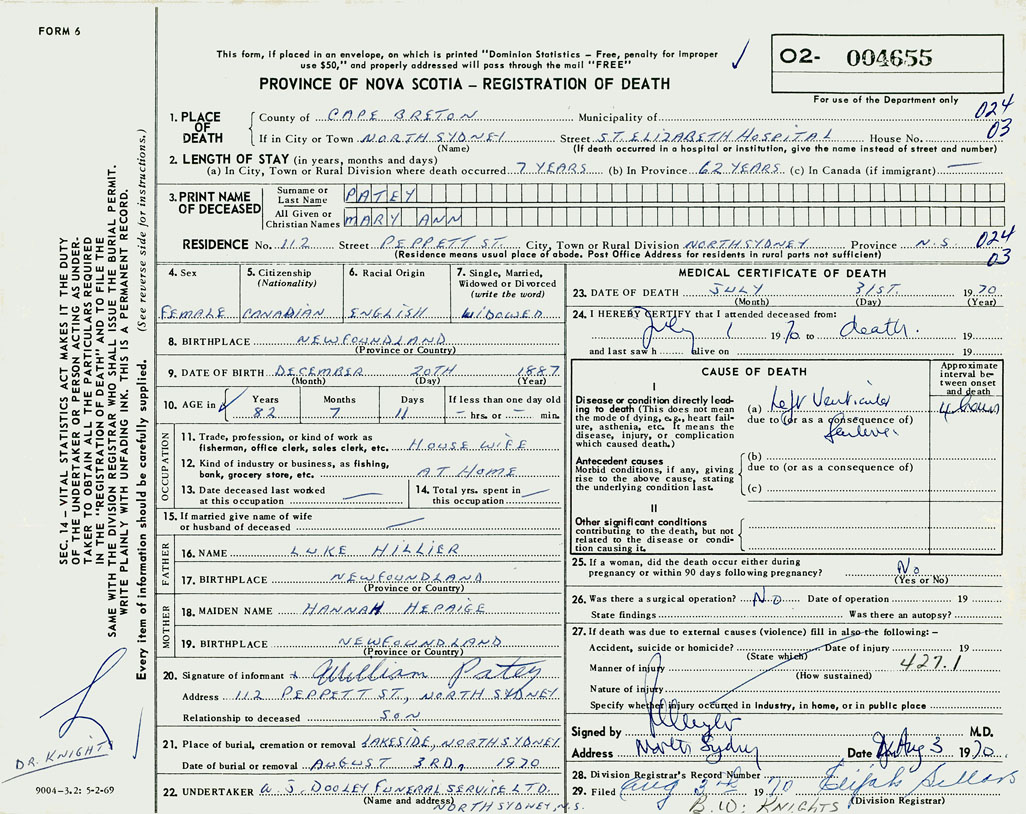 FORM 6
This form, if placed in an envelope, on which is printed "Dominion Statistics – Free, penalty for improper
use $50," and properly addressed will pass through the mail "FREE"
PROVINCE OF NOVA SCOTIA – REGISTRATION OF DEATH
02- 004655
For use of the Department only
024
03
1. PLACE OF DEATH
County of CAPE BRETON Municipality of
If in City or Town NORTH SYDNEY Street ST. ELIZABETH HOSPITAL House No.
(Name) (If death occurred in a hospital or institution, give the name instead of street and number)
2. LENGTH OF STAY (in years, months and days)
(a) In City, Town or Rural Division where death occurred 7 YEARS (b) In Province 62 YEARS (c) In Canada (if immigrant) —
3. PRINT NAME OF DECEASED
Surname or Last Name PATEY
All Given or Christian Names MARY ANN
RESIDENCE No. 112 Street PEPPETT ST. City, Town or Rural Division NORTH SYDNEY Province N.S.
(Residence means usual place of abode. Post Office Address for residents in rural parts not sufficient)
024
03
4. Sex
FEMALE
5. Citizenship
(Nationality)
CANADIAN
6. Racial Origin
ENGLISH
7. Single, Married,
Widowed or Divorced
(write the word)
WIDOWED
8. BIRTHPLACE NEWFOUNDLAND
(Province or Country)
9. DATE OF BIRTH DECEMBER 20TH 1887
(Month) (Day) (Year)
10. AGE in
Years Months Days If less than one day old
82 7 11 – hrs. or – min.
OCCUPATION
11. Trade, profession, or kind of work as
fisherman, office clerk, sales clerk, etc. HOUSE WIFE
12. Kind of industry or business, as fishing,
bank, grocery store, etc. AT HOME
13. Date deceased last worked
at this occupation —
14. Total yrs. spent in
this occupation —
15. If married give name of wife
or husband of deceased —
FATHER
16. NAME LUKE HILLIER
17. BIRTHPLACE NEWFOUNDLAND
(Province or Country)
MOTHER
18. MAIDEN NAME HANNAH HEPAIGE
19. BIRTHPLACE NEWFOUNDLAND
(Province or Country)
20. Signature of informant William Patey
Address 112 PEPPETT ST, NORTH SYDNEY
Relationship to deceased SON
21. Place of burial, cremation or removal LAKESIDE, NORTH SYDNEY
Date of burial or removal AUGUST 3RD, 1970
22. UNDERTAKER A. J. DOOLEY FUNERAL SERVICE LTD.
(Name and address) NORTH SYDNEY, N.S.
MEDICAL CERTIFICATE OF DEATH
23. DATE OF DEATH JULY 31ST. 1970
(Month) (Day) (Year)
24. I HEREBY CERTIFY that I attended deceased from:
July 1 1970 to death.
and last saw h alive on 19
CAUSE OF DEATH
Approximate interval between onset and death
I
Disease or condition directly leading to death (This does not
mean the mode of dying, e.g., heart failure, asthenia, etc. It means the
disease, injury, or complication
which caused death.)
(a) Left Ventricular
due to (or as a consequence of)
failure.
4 hours
Antecedent causes
Morbid conditions, if any, giving
rise to the above cause, stating
the underlying condition last.
(b)
due to (or as a consequence of)
(c)
II
Other significant conditions
contributing to the death, but not
related to the disease or condition causing it.
25. If a woman, did the death occur either during
pregnancy or within 90 days following pregnancy? No
(Yes or No)
26. Was there a surgical operation? No Date of operation 19
State findings Was there an autopsy?
27. If death was due to external causes (violence) fill in also the following: –
Accident, suicide or homicide? Date of injury 19
(State which)
427.1
Manner of injury
(How sustained)
Nature of injury
Specify whether injury occurred in industry, in home, or in public place
Signed by M.D.
Address North Sydney Date Aug 3 1970
28. Division Registrar's Record Number
29. Filed Aug 3rd 1970 Elijah Sellars
(Division Registrar)
B.W. KNIGHTS
SEC. 14 – VITAL STATISTICS ACT MAKES IT THE DUTY
OF THE UNDERTAKER OR PERSON ACTING AS UNDER-
TAKER TO OBTAIN ALL THE PARTICULARS REQUIRED
IN THE "REGISTRATION OF DEATH" AND TO FILE THE
SAME WITH THE DIVISION REGISTRAR WHO SHALL ISSUE THE BURIAL PERMIT.
WRITE PLAINLY WITH UNFADING INK. THIS IS A PERMANENT RECORD.
Every item of information should be carefully supplied. (See reverse side for instructions.)
DR. KNIGHT
9004–3.2: 5-2-69